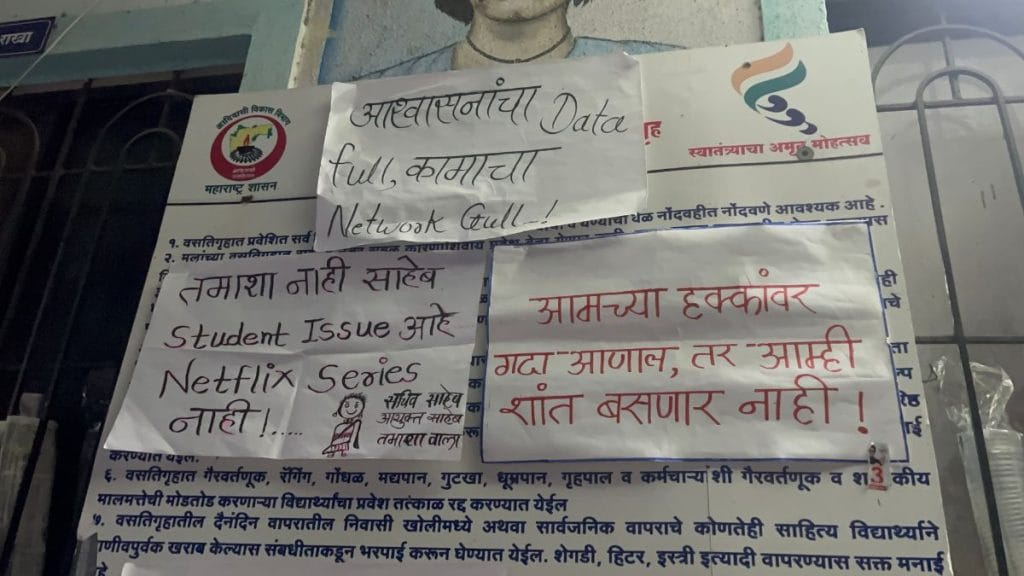 राखा
आदिवासी विकास विभाग
महाराष्ट्र शासन
आश्वासनांचा Data
full, कामाचा
Network Gull...!
गृह
स्वातंत्र्याचा अमृत महोत्सव
१. वसतिगृहात प्रवेशित सर्व
वेळ नोंदवहीत नोंदवणे आवश्यक आहे.
२. मुलांच्या वसतिगृहात
तमाशा नाही साहेब
Student Issue आहे
Netflix Series
नाही!.....
सचिव साहेब
आयुक्त साहेब
तमाशा वाला
आमच्या हक्कांवर
गदा आणाल, तर आम्ही
शांत बसणार नाही!
करण्यात येईल.
६. वसतिगृहात गैरवर्तणूक, रॅगिंग, गोंधळ, मद्यपान, गुटखा, धूम्रपान, गृहपाल व कर्मचाऱ्यांशी गैरवर्तणूक व
मालमत्तेची मोडतोड करणाऱ्या विद्यार्थ्यांचा प्रवेश तत्काळ रद्द करण्यात येईल
७. वसतिगृहातील दैनंदिन वापरातील निवासी खोलीमध्ये अथवा सार्वजनिक वापराचे कोणतेही साहित्य विद्यार्थ्याने
खराब केल्यास संबधीताकडून भरपाई करून घेण्यात येईल. शेगडी, हिटर, इस्त्री इत्यादी वापरण्यास सक्त मनाई